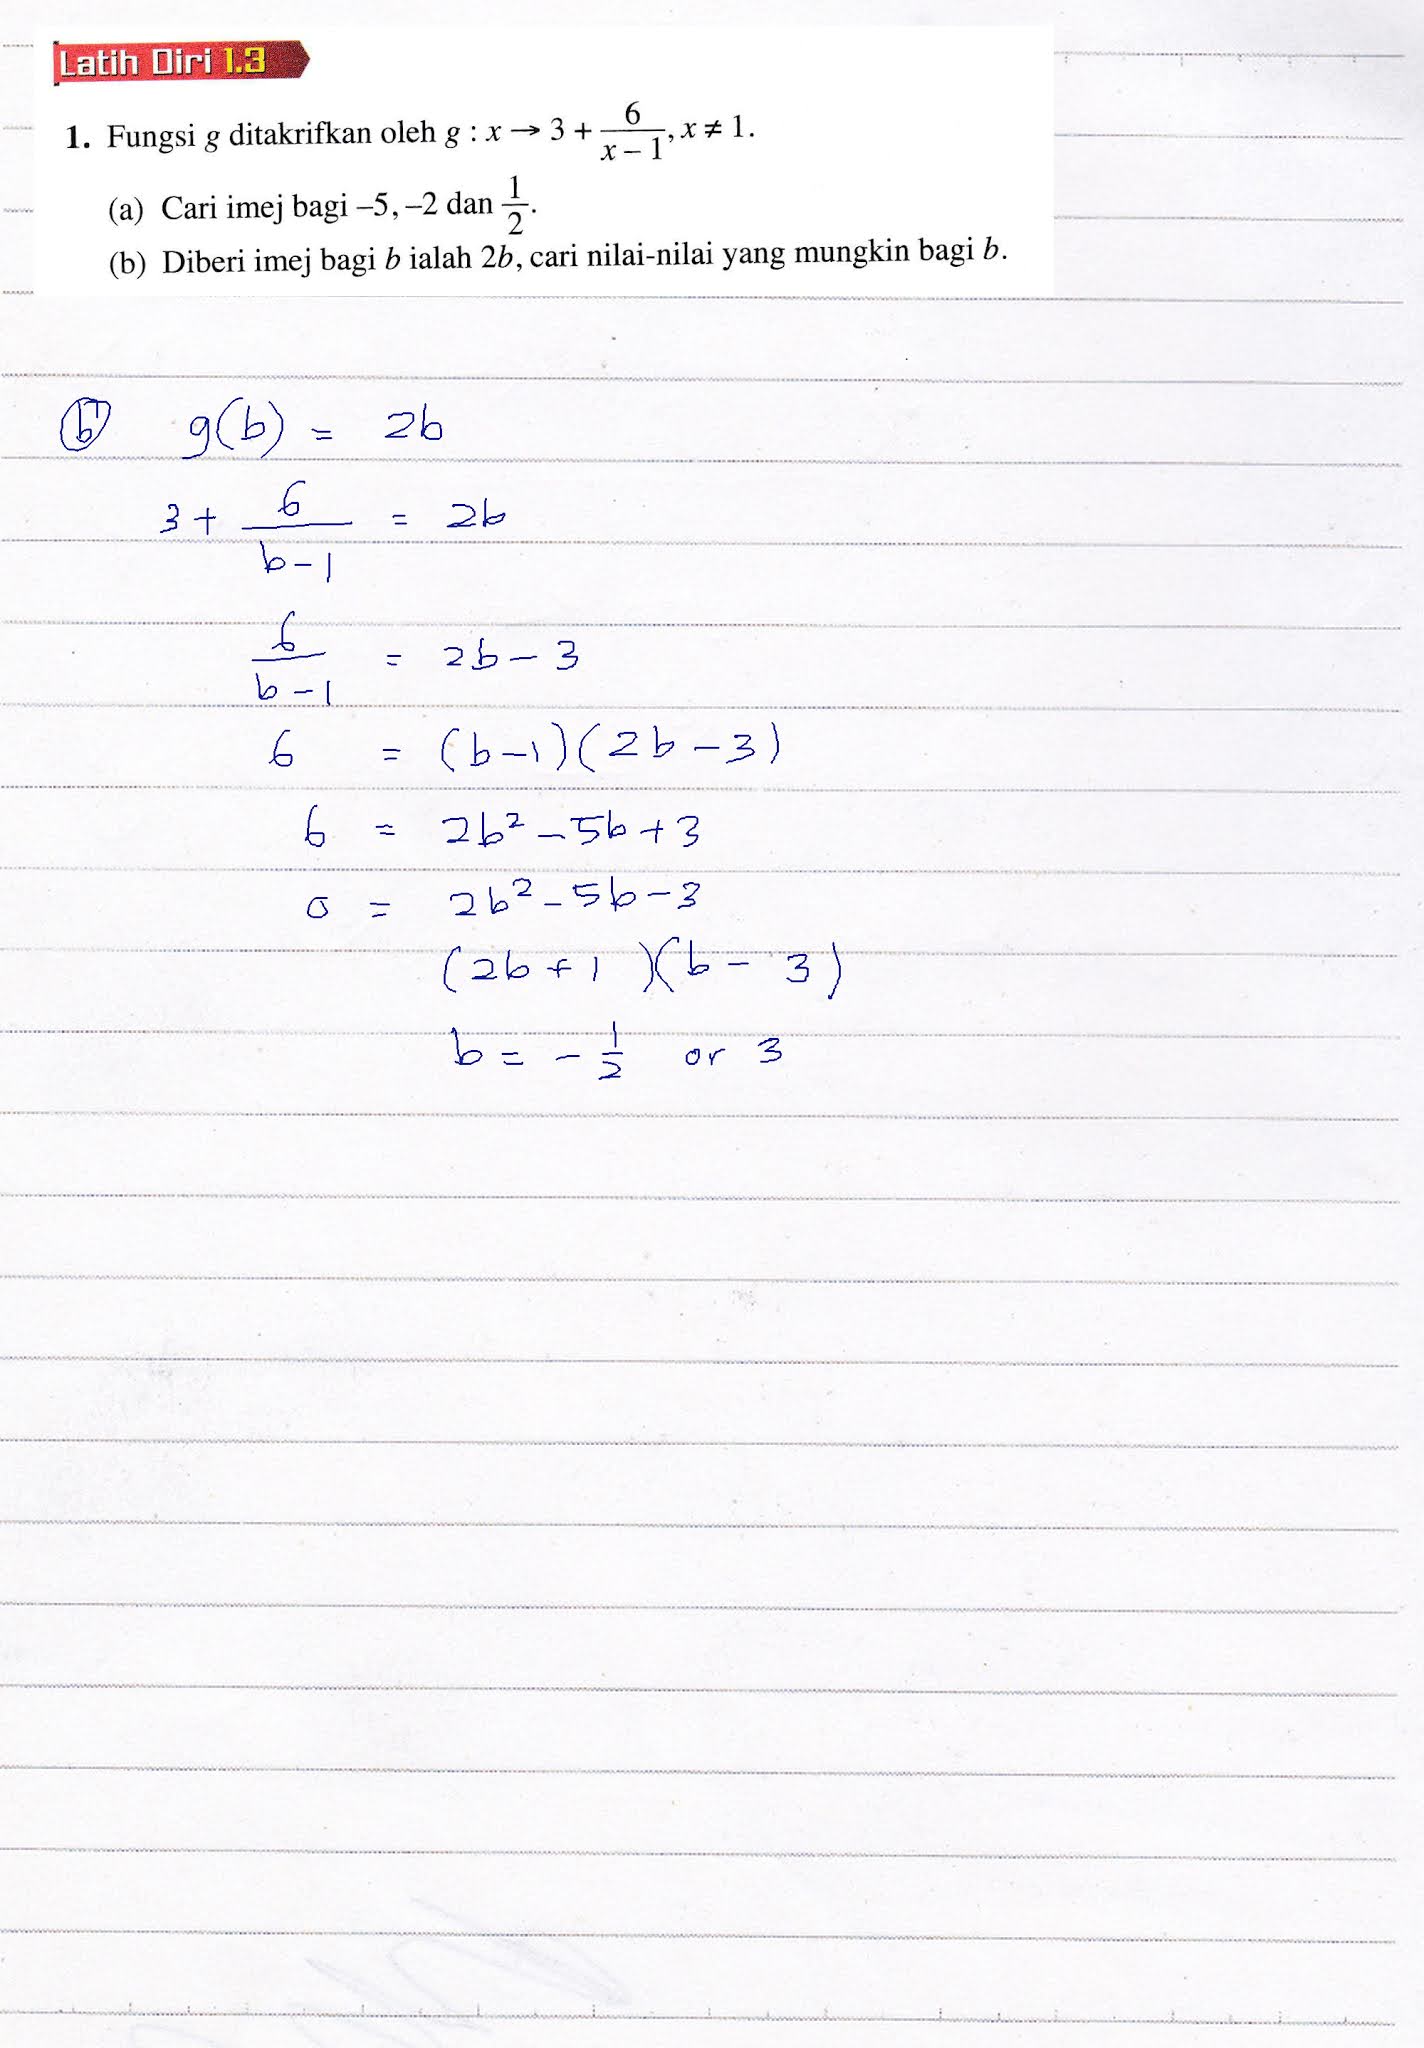 Latih Diri 1.3
1. Fungsi g ditakrifkan oleh g : x → 3 + 6/(x – 1), x ≠ 1.
(a) Cari imej bagi –5, –2 dan 1/2.
(b) Diberi imej bagi b ialah 2b, cari nilai-nilai yang mungkin bagi b.
(b) g(b) = 2b
3 + 6/(b – 1) = 2b
6/(b – 1) = 2b – 3
6 = (b – 1)(2b – 3)
6 = 2b² – 5b + 3
0 = 2b² – 5b – 3
(2b + 1)(b – 3)
b = – 1/2 or 3